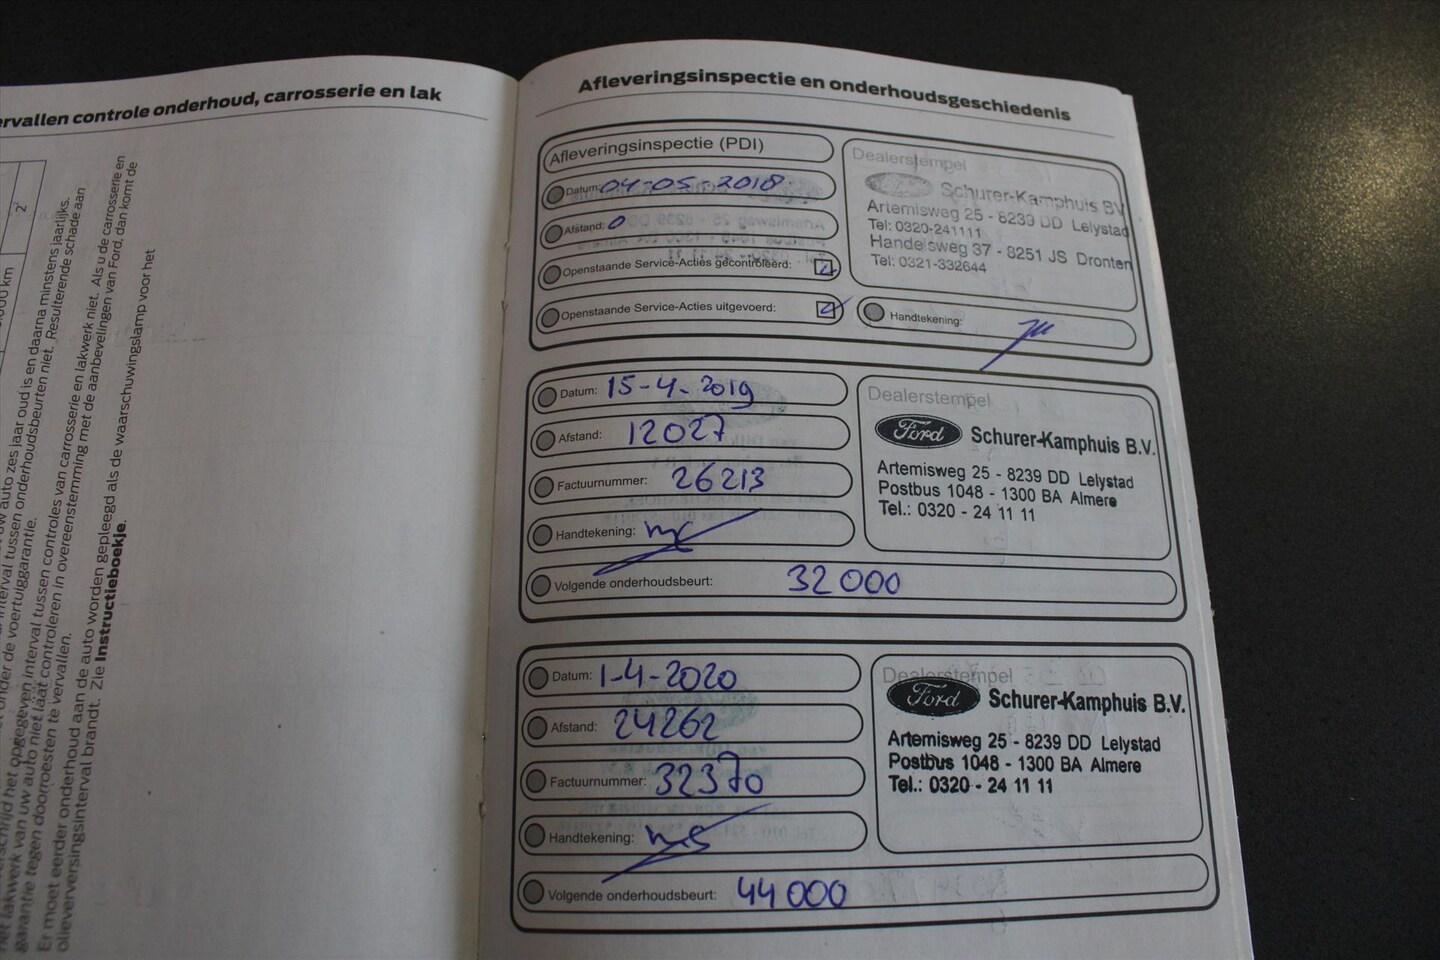 ervallen controle onderhoud, carrosserie en lak
2
000 km
uw auto zes jaar oud is en daarna minstens jaarlijks.
interval tussen onderhoudsbeurten niet. Resulterende schade aan
onder de voertuiggarantie.
schrijd het opgegeven interval tussen controles van carrosserie en lakwerk niet. Als u de carrosserie en
het lakwerk van uw auto niet laat controleren in overeenstemming met de aanbevelingen van Ford, dan komt de
garantie tegen doorroesten te vervallen.
Er moet eerder onderhoud aan de auto worden gepleegd als de waarschuwingslamp voor het
olieverversingsinterval brandt. Zie Instructieboekje.
Afleveringsinspectie en onderhoudsgeschiedenis
Afleveringsinspectie (PDI)
Datum: 04-05-2018
Afstand: 0
Openstaande Service-Acties gecontroleerd:
Openstaande Service-Acties uitgevoerd:
Dealerstempel
Schurer-Kamphuis BV
Artemisweg 25 - 8239 DD Lelystad
Tel: 0320-241111
Handelsweg 37 - 8251 JS Dronten
Tel: 0321-332644
Handtekening:
Datum: 15-4-2019
Afstand: 12027
Factuurnummer: 26213
Handtekening:
Volgende onderhoudsbeurt: 32000
Dealerstempel
Ford Schurer-Kamphuis B.V.
Artemisweg 25 - 8239 DD Lelystad
Postbus 1048 - 1300 BA Almere
Tel.: 0320 - 24 11 11
Datum: 1-4-2020
Afstand: 24262
Factuurnummer: 32370
Handtekening:
Volgende onderhoudsbeurt: 44000
Dealerstempel
Ford Schurer-Kamphuis B.V.
Artemisweg 25 - 8239 DD Lelystad
Postbus 1048 - 1300 BA Almere
Tel.: 0320 - 24 11 11